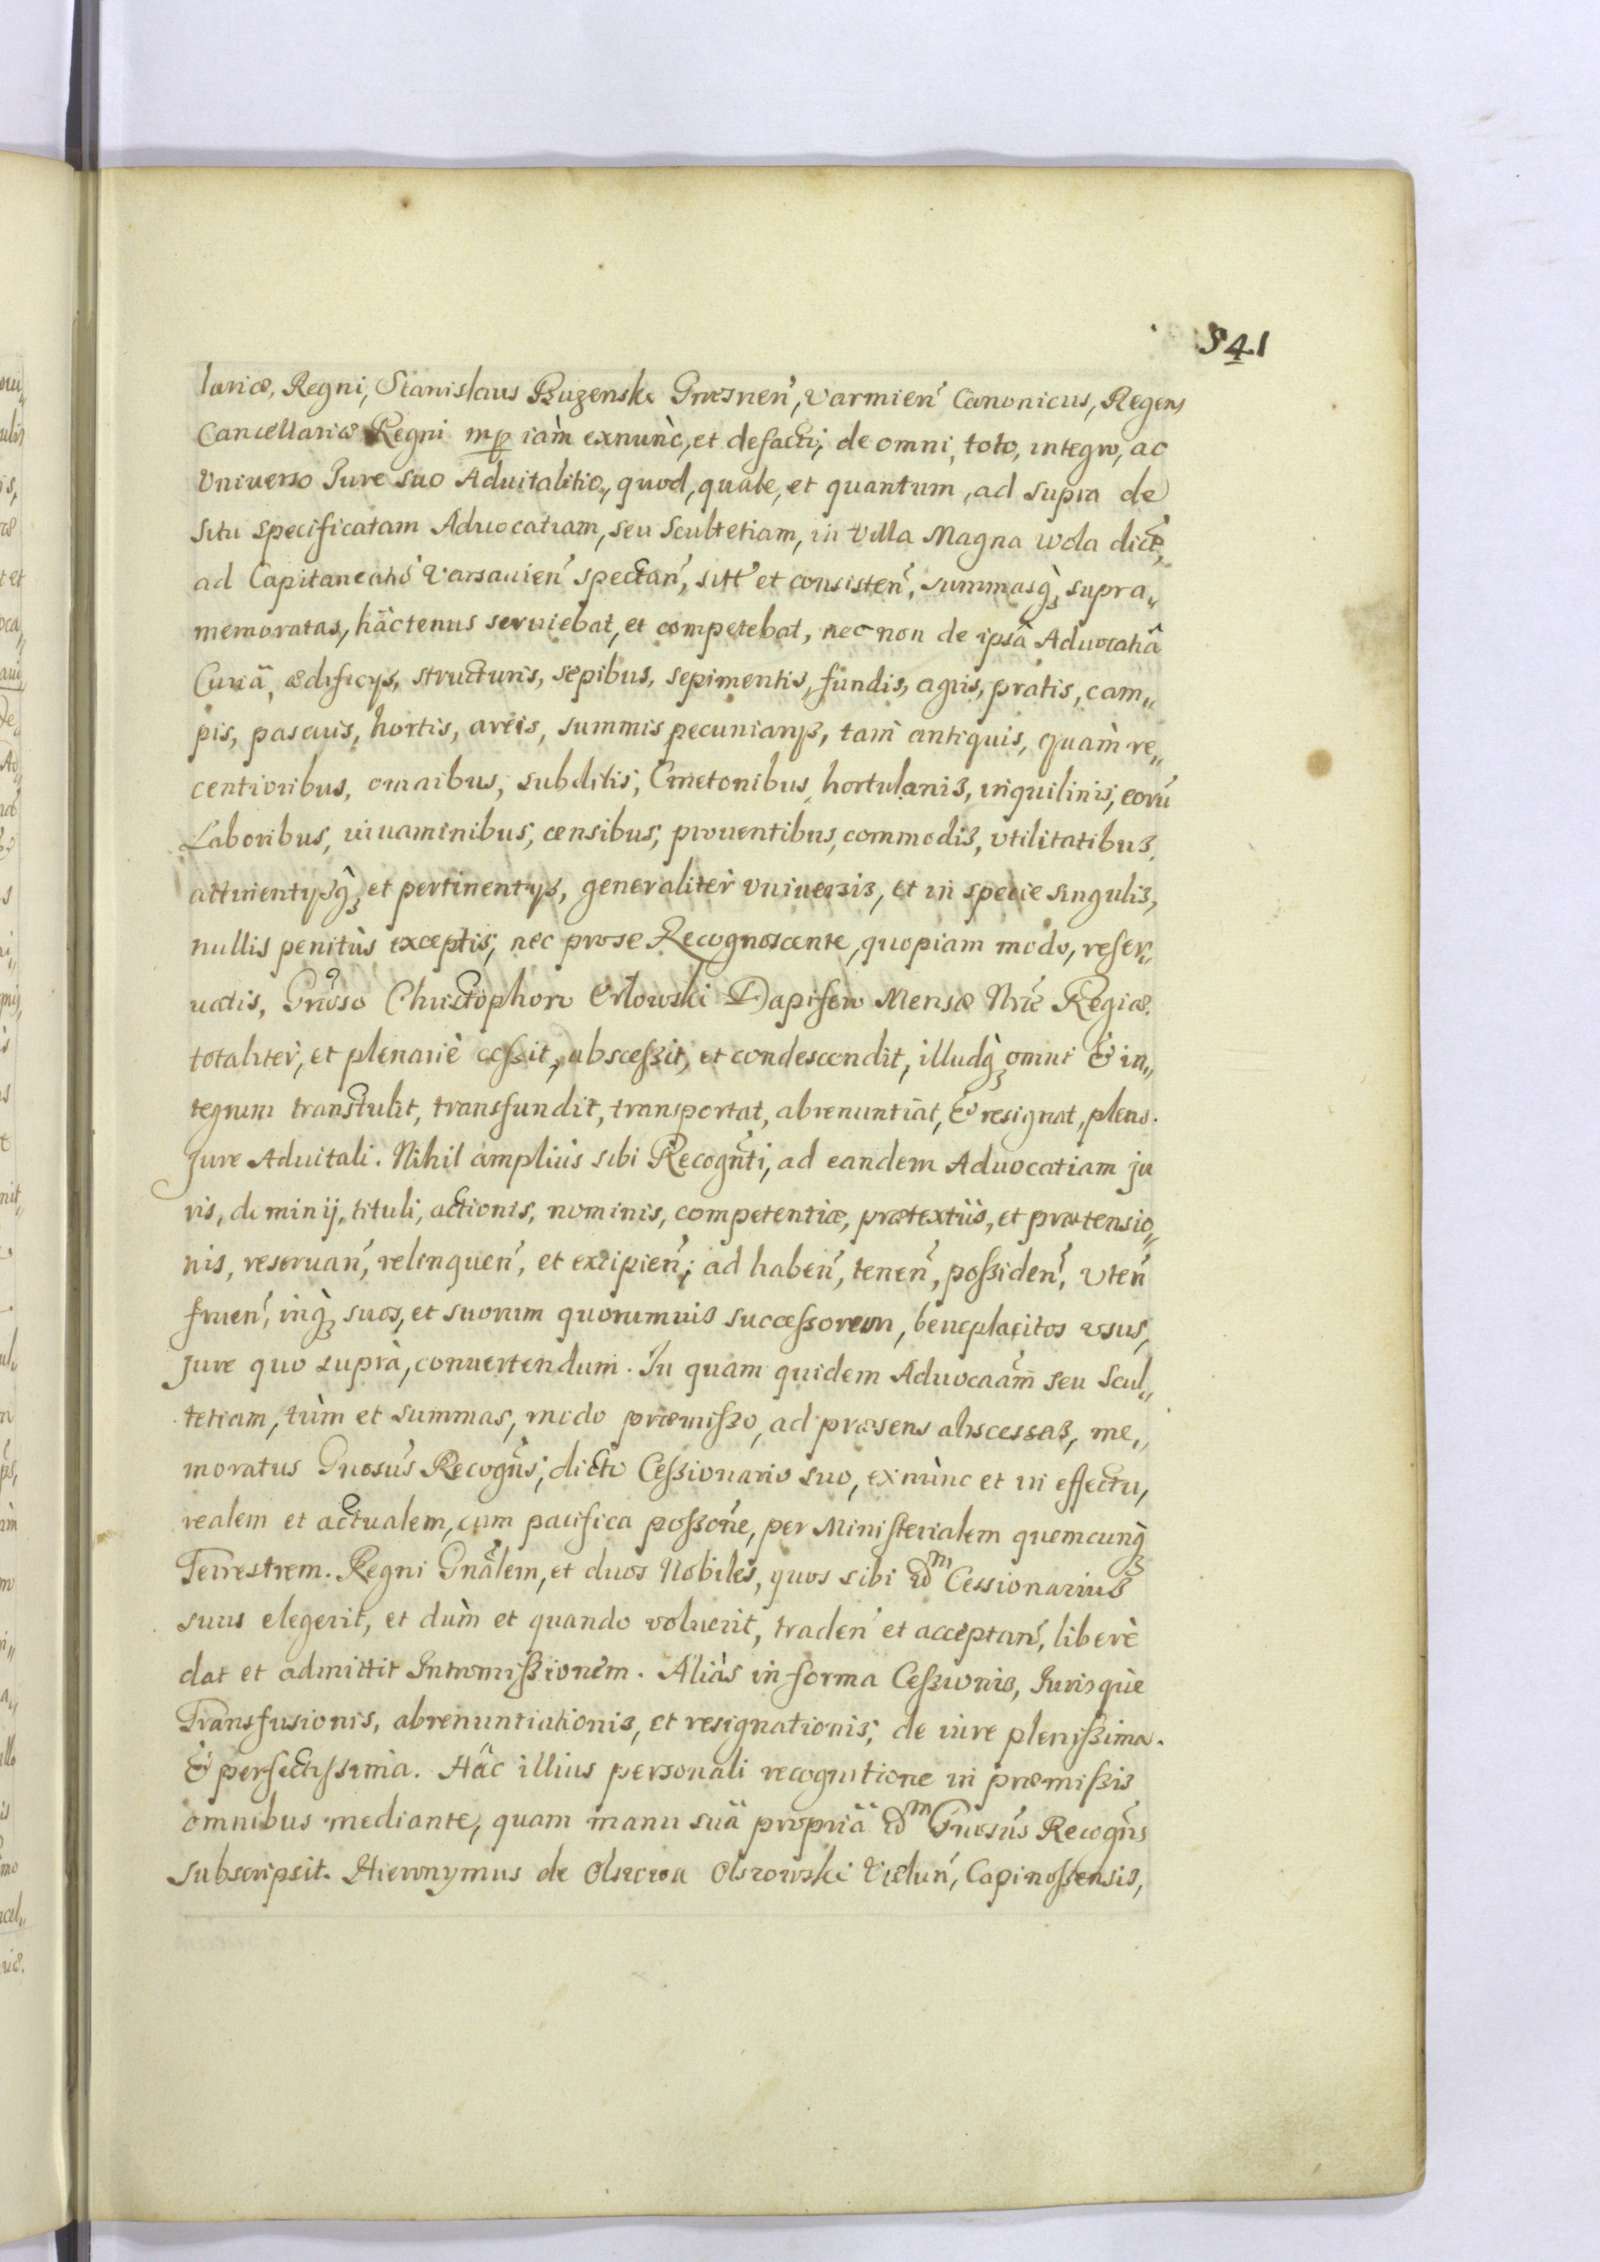 841
lariæ, Regni, Stanislaus Buzenski Gnesnen̄, Varmien̄ Canonicus, Regens
Cancellariæ Regni mp iàm exnùnc, et defacti; de omni, toto, integro, ac
Vniuerso Jure suo Aduitalitio, quod, quale, et quantum, ad supra de
situ specificatam Aduocatiam, seu Scultetiam, in Villa Magna Wola dict̄,
ad Capitaneatū Varsauien̄ spectan̄, sitt̄ et consisten̄, summasq̀ supra„
memoratas, häctenus seruiebat, et competebat, nec non de ipsâ Aduocatiâ
Curiä, ædificijs, structuris, sepibus, sepimentis, fundis, agris, pratis, cam„
pis, pascuis, hortis, areis, summis pecuniarijs, tam̀ antiquis, quam̀ re„
centioribus, omnibus, subditis, Cmetonibus, hortulanis, inquilinis, eorū
Laboribus, iuuaminibus, censibus, prouentibus, commodis, vtilitatibus,
attinentijsq̀, et pertinentijs, generalitèr vniuersis, et in specie singulis,
nullis penitùs exceptis, nec prose Recognoscente, quopiam modo, reser„
uatis, Gnōso Christophoro Orlowski Dapifero Mensæ Nr̄æ Regiæ.
totalitèr, et plenariè cessit, abscessit, et condescendit, illudq̀ omne & in„
tegrum transtulit, transfundit, transportat, abrenuntiat, & resignat, pleno.
Jure Aduitali. Nihil ampliùs sibi Recogn̄ti, ad eandem Aduocatiam ju
ris, dominij, tituli, actionis, nominis, competentiæ, prætextùs, et prætensio„
nis, reseruan̄, relinquen̄, et excipien̄; ad haben̄, tenen̄, possiden̄, Vten̄
fruen̄, inq̀ suos, et suorum quorumuis successorum, beneplacitos vsus,
Jure quo suprà, conuertendum. In quam quidem Aduocaām seu Scul„
tetiam, tùm et summas, modo præmisso, ad præsens abscessas, me„
moratus Gnosūs Recogn̄s; dicto Cessionario suo, exnùnc et in effectu,
realem et actualem, cum pacifica possōne, per Ministerialem quemcunq̀
Terrestrem. Regni Gnālem, et duos Nobiles, quos sibi idm Cessionarius
suus elegerit, et dùm et quando voluerit, traden̄ et acceptan̄, liberè
dat et admittit Intromissionem. Aliàs in forma Cessionis, Jurisquè
Transfusionis, abrenuntiationis, et resignationis; de iure plenissima.
& perfectissima. Hâc illius personali recognitione in præmissis
omnibus mediante, quam manu suä propriä idm Gnosūs Recogn̄s
subscripsit. Hieronymus de Olszowa Olszowski Vielun̄, Capinossensis,